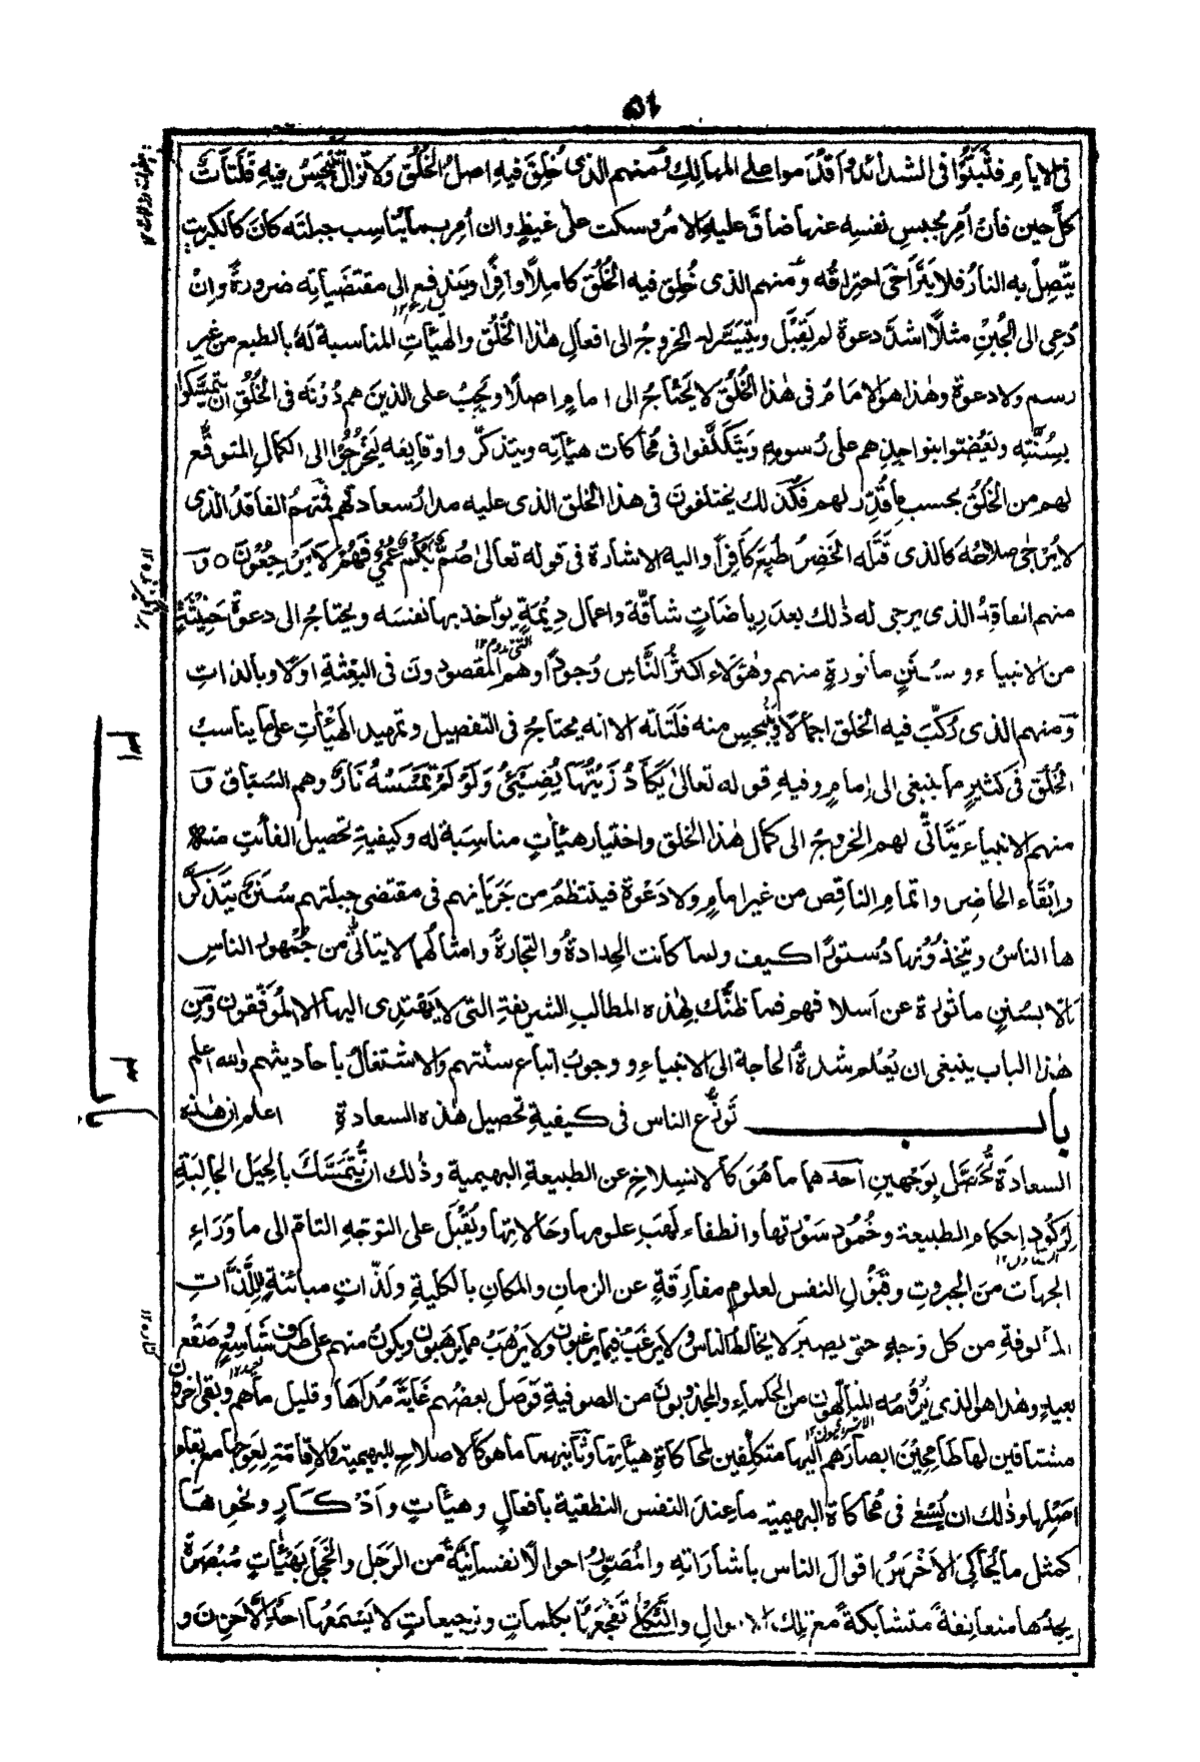 ۵۱
فى الايام فثبتوا فى الشدائد واقدموا على المهالك ومنهم الذى خلق فيه اصل الخُلُق ولا تزال تنبجس فيه فلتات
كل حين فان اُمِر بحبس نفسه عنها ضاق عليه الامر وسكت على غيظٍ وان اُمِر بما يناسب جبلته كان كالكبريت
يتّصل به النار فلا يتراخى احتراقه ومنهم الذى خُلِق فيه الخُلُق كاملاً وافراً ويندفع الى مقتضياته ضرورةً وان
دُعِى الى الجُبن مثلاً اشدّ دعوة لم يقبل ويتيسر له الخروج الى افعال هٰذا الخُلُق والهيئات المناسبة له بالطبع من غير
رسم ولا دعوة وهٰذا هو الامام فى هٰذا الخُلُق لا يحتاج الى امام اصلاً ويجب على الذين هم دونه فى الخُلُق ان يتمسّكوا
بسُنّته ويعضّوا بنواجذهم على رسومه ويتكلّفوا فى محاكات هيئاته ويتذكّروا وقايعه ليخرجوا الى الكمال المتوقع
لهم من الخُلُق بحسب ما قُدّر لهم فكذلك يختلفون فى هذا الخلق الذى عليه مدار سعادتهم فمنهم الفاقد الذى
لا يُرجى صلاحه كالذى قتله الخضر طُبِع كافراً واليه الاشارة فى قوله تعالى صُمٌّ بُكْمٌ عُمْيٌ فَهُمْ لَا يَرْجِعُوْنَ ٥ و
منهم الفاقد الذى يرجى له ذٰلك بعد رياضاتٍ شاقّة واعمال ديمةٍ يؤاخذ بها نفسه ويحتاج الى دعوة حثيثةٍ
من الانبياء وسُنَنٍ مأثورةٍ منهم وهٰؤلاء اكثر النّاس وُجوداً وهم المقصودون فى البعثة اولاً وبالذات
ومنهم الذى رُكّب فيه الخلق اجمالاً وينبجس منه فلتاته الا انه يحتاج فى التفصيل وتمهيد الهيئات على ما يناسب
الخُلُق فى كثير مما ينبغى الى امام وفيه قوله تعالىٰ يَكَادُ زَيْتُهَا يُضِيْٓئُ وَلَوْ لَمْ تَمْسَسْهُ نَارٌ وهم السُبّاق و
منهم الانبياء يتأتّى لهم الخروج الى كمال هٰذا الخلق واختيار هيئاتٍ مناسبة له وكيفية تحصيل الفائت منه
وابقاء الحاضر واتمام الناقص من غير امامٍ ولا دعوة فينتظم من جَرَيانهم فى مقتضى جبلتهم سُننٌ يتذكّر
ها الناسُ ويتخذونها دستوراً كيف ولما كانت الحِدادةُ والتجارةُ وامثالهما لا يتأتى من جُمهور الناس
الا بسُننٍ مأثورة عن اسلافهم فما ظنّك بهٰذه المطالب الشريفة التى لا يهتدى اليها الا الموفّقون ومن
هٰذا الباب ينبغى ان يُعلم شدة الحاجة الى الانبياء ووجوبُ اتباع سنتهم والاشتغال باحاديثهم والله اعلم
باب توزّع الناس فى كيفية تحصيل هٰذه السعادة اعلم ان هٰذه
السعادة تُحصَّل بوجهين احدهما ما هو كالانسلاخ عن الطبيعة البهيمية وذٰلك ان يُتمسَّك بالحِيَل الجالبة
لركود احكام الطبيعة وخُمود سَورتها وانطفاء لَهب علومها وحالاتها ويُقبَل على التوجه التام الى ما وراء
الجهات من الجبروت وقبول النفس لعلوم مفارقة عن الزمان والمكان بالكلية ولذّاتٍ مبائنةٍ لِلّذّات
المألوفة من كل وجه حتى يصير لا يخالط الناس ولا يرغب فيما يرغبون ولا يرهب مما يرهبون ويكون منهم على طرف شاسعٍ وصقعٍ
بعيد وهٰذا هو الذى يرومه المتألهون من الحكماء والمجذوبون من الصوفية فوصل بعضهم غاية مُداها وقليل ما هم وبقى اخرون
مشتاقين لها طامحين ابصارهم اليها متكلفين لمحاكاة هيئاتها وثانيهما ما هو كالاصلاح للبهيمية والاقامة لِعِوَجها مع بقاء
اصلها وذٰلك ان يُسْعٰى فى محاكاة البهيمية ما عند النفس النطقية بافعالٍ وهيئاتٍ واذكارٍ ونحوها
كمثل ما يُحاكى الاخرس اقوال الناس باشاراته والمصوّر احوالاً نفسانيةً من الوجل والخجل بهيئاتٍ مبصرةً
يجدها متعانقةً متشابكةً مع تلك الاحوال والثكلٰى تفجعها بكلماتٍ وترجيعاتٍ لا يسمعها احد الا حزن و